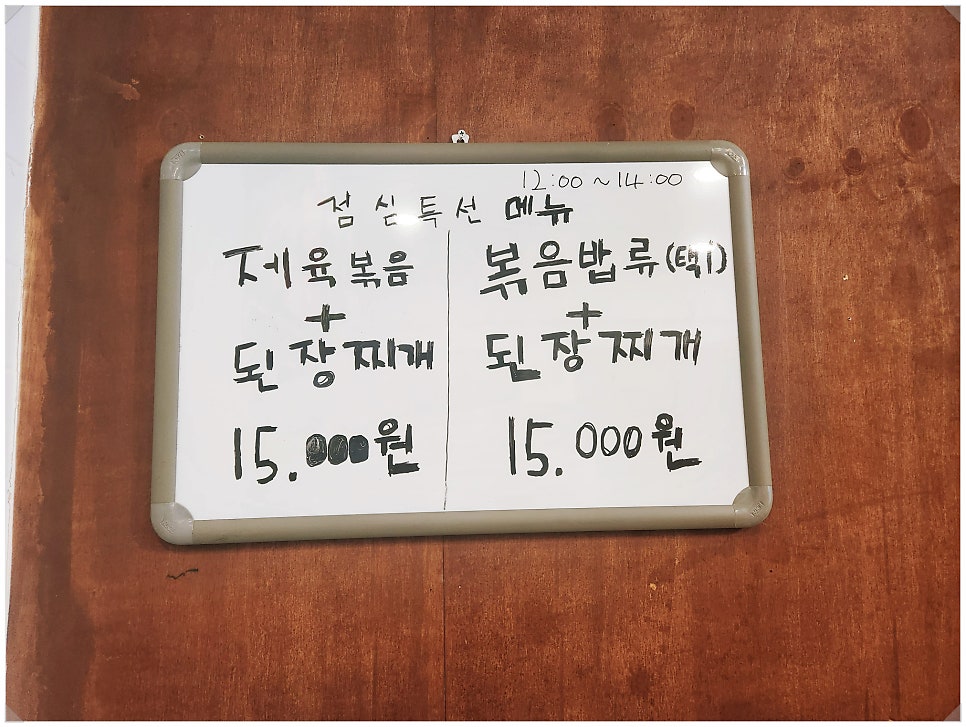 12:00 ~ 14:00
점심특선 메뉴
제육볶음
+
된장찌개
15.000원
볶음밥류(택1)
+
된장찌개
15.000원